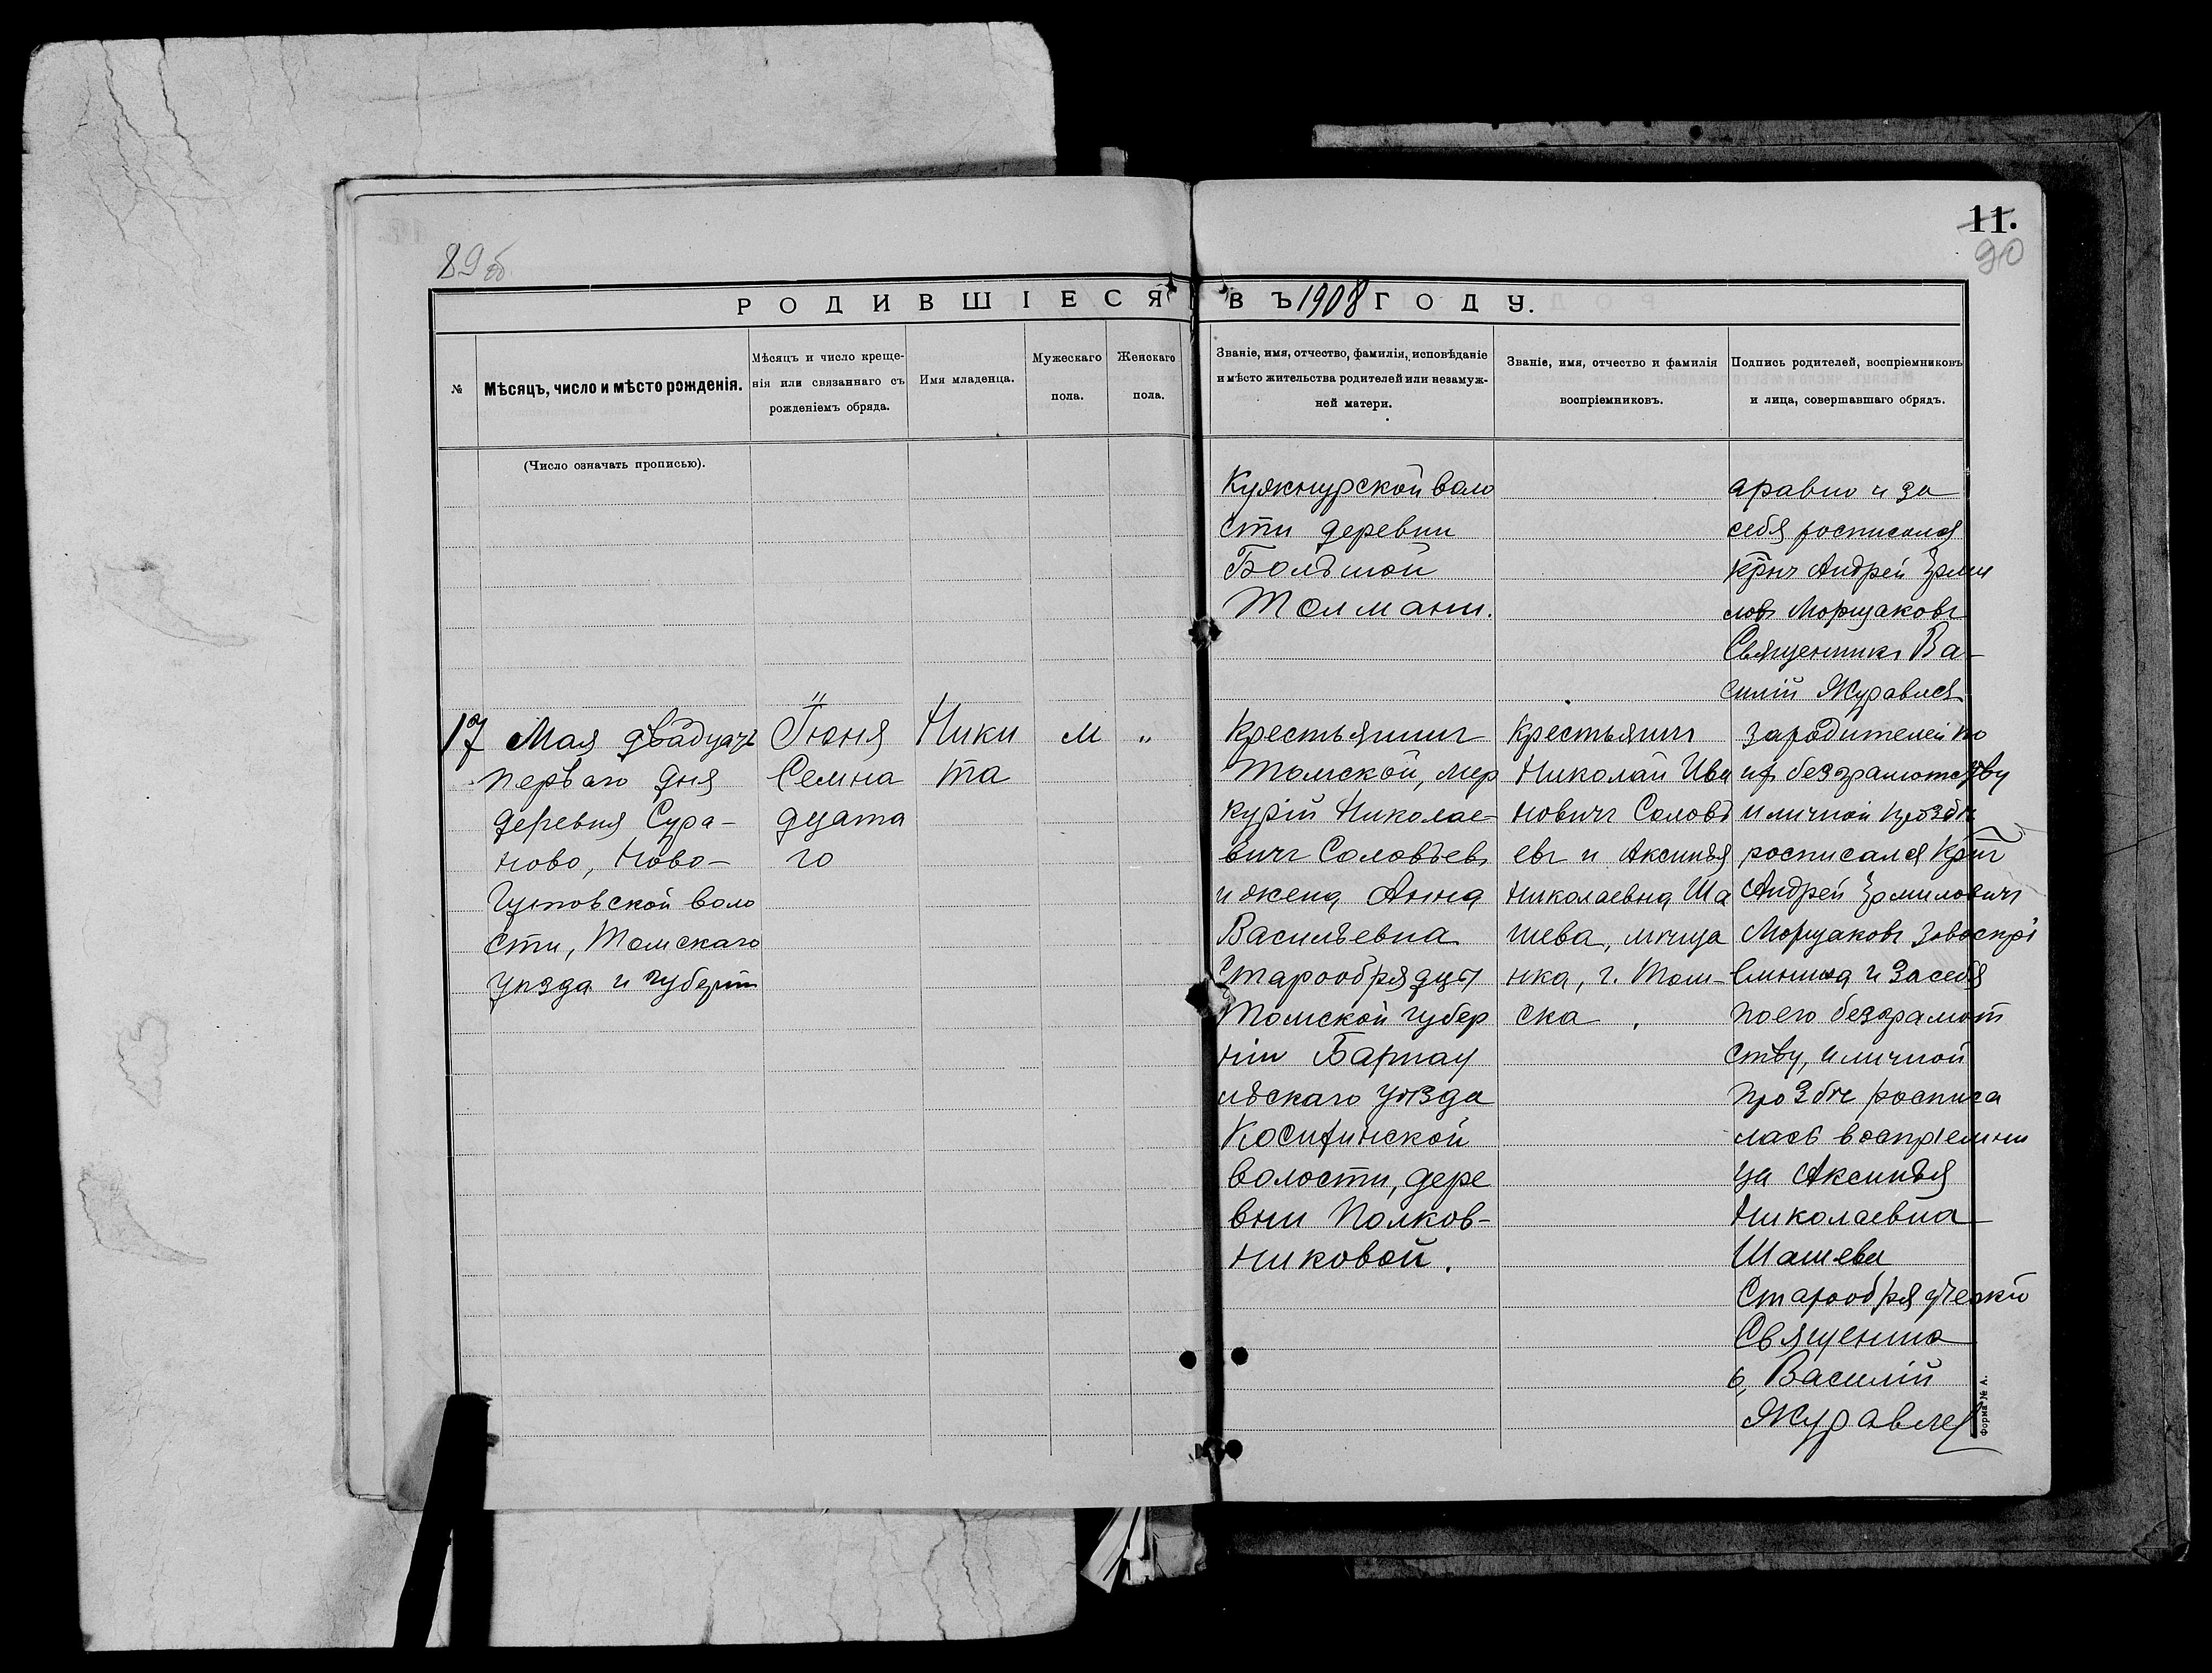 89об
11.
90
РОДИВШІЕСЯ ВЪ 1908 ГОДУ.
№
Мѣсяцъ, число и мѣсто рожденія.
Мѣсяцъ и число креще-
нія или связаннаго съ
рожденіемъ обряда.
Имя младенца.
Мужескаго
пола.
Женскаго
пола.
Званіе, имя, отчество, фамилія, исповѣданіе
и мѣсто жительства родителей или незамуж-
ней матери.
Званіе, имя, отчество и фамилія
воспріемниковъ.
Подпись родителей, воспріемниковъ
и лица, совершавшаго обрядъ.
(Число означать прописью).
воло
сти деревни
Большой
Толмани.
аравно и за
себя росписался
Андрей Ерми
ловъМорщаковъ
Священникъ Ва-
силій Журавлев
17
Мая двадцать
перваго дня
деревня Сура-
ново, Ново-
Кусковской воло
сти, Томскаго
уѣзда и губерніи
Іюня
Семна
дцата
го
Ники
та
М
"
Крестьянинъ
Томской, Мер
курій Николае-
вичъ Соловьевъ
и жена Анна
Васильевна
Старообрядцы
Томской губер
ніи Барнау
льскаго уѣзда
Косихинской
волости, дере
вни Полков-
никовой.
Крестьянинъ
Николай Ива
новичъ Соловь
евъ и Аксинья
Николаевна Ша
шева, мѣща
нка, г. Том-
ска.
за родителей по
их безграмотству
и личной прозбѣ
росписался
Андрей Ермиловичъ
Морщаковъ за воспрі
емника и за себя
по его безграмот
ству, и личной
прозбѣ росписа
лась воспріемни
ца Аксинья
Николаевна
Шашева
Старообрядческій
Священно
б, Василій
Журавлев
Форма № А.